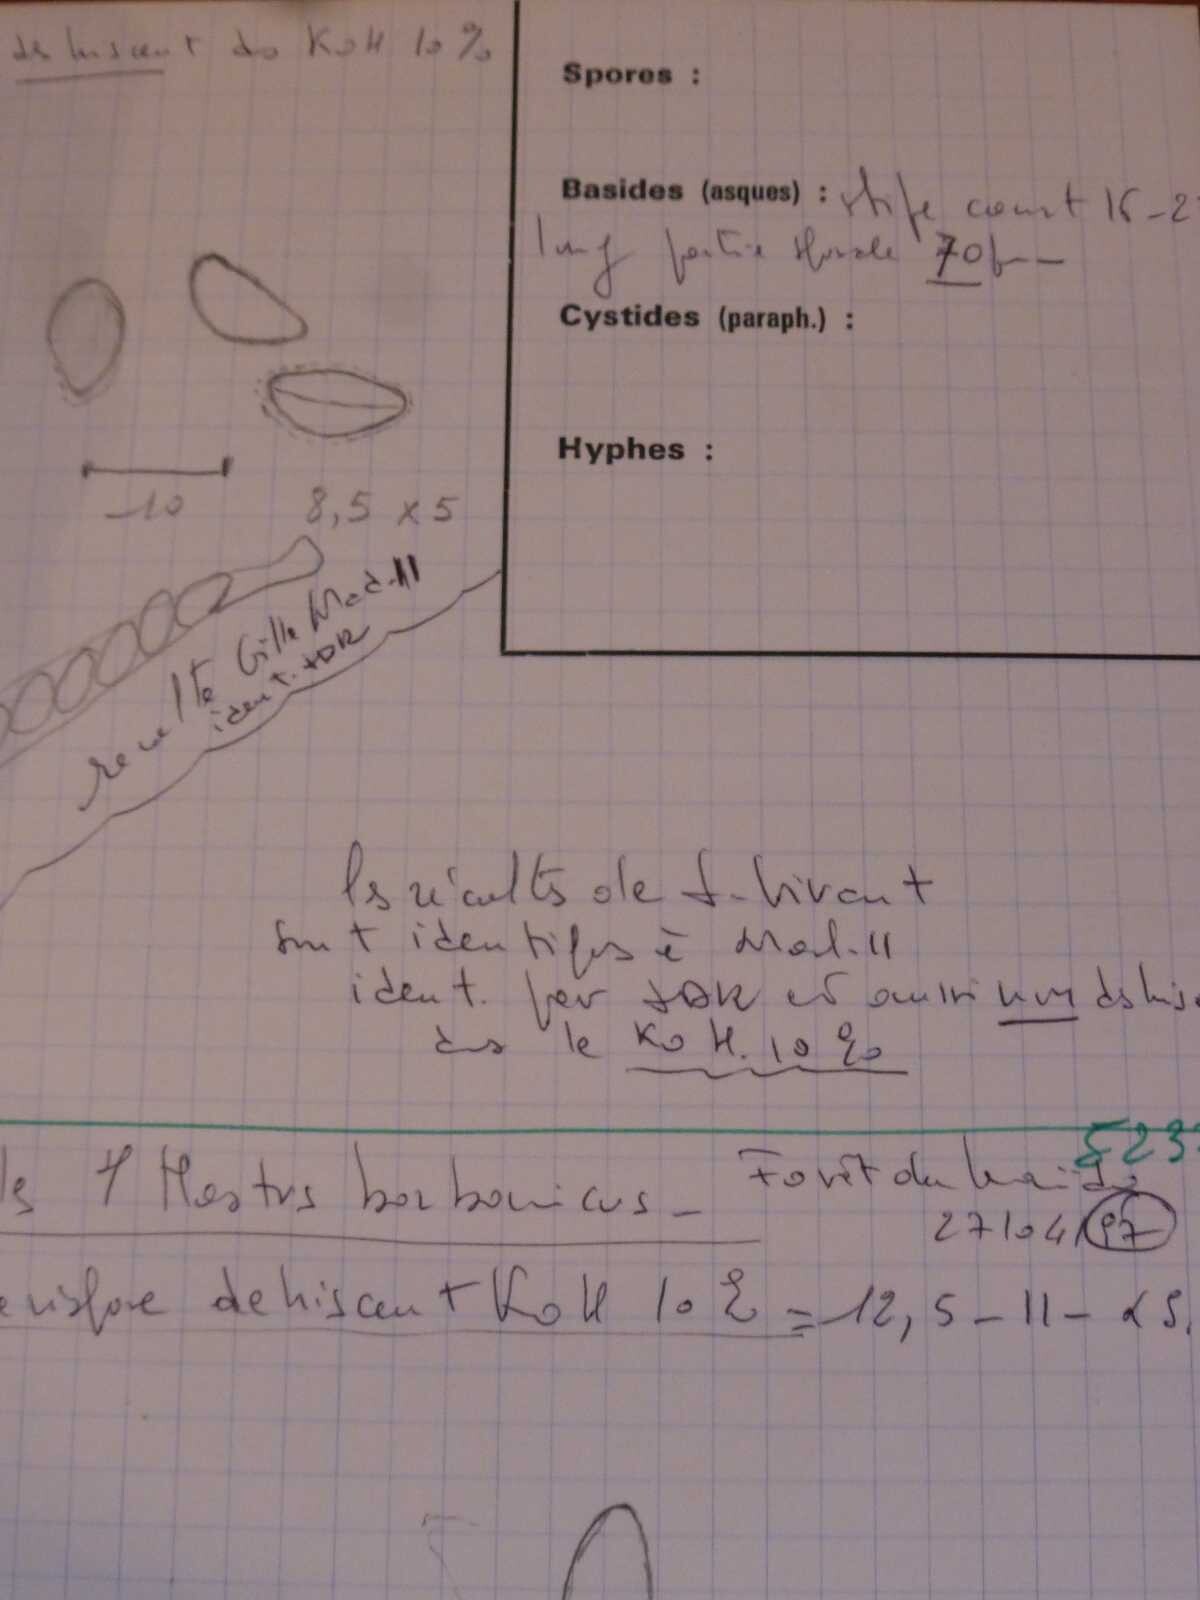 dehiscent ds KOH 10%
Spores :
Basides (asques) : stipe court 15-2
long partie sporale 70
Cystides (paraph.) :
Hyphes :
10
8,5 x 5
recolte Gille Mad-11
ident. JDR
les récoltes de
sont identifes à Mad-11
ident. par JDR et aussi non dehis
ds le KOH. 10%
523
Nastus borbonicus - Forêt du Maïdo
27/04/97
dehiscent KOH 10% = 12,5 - 11 -